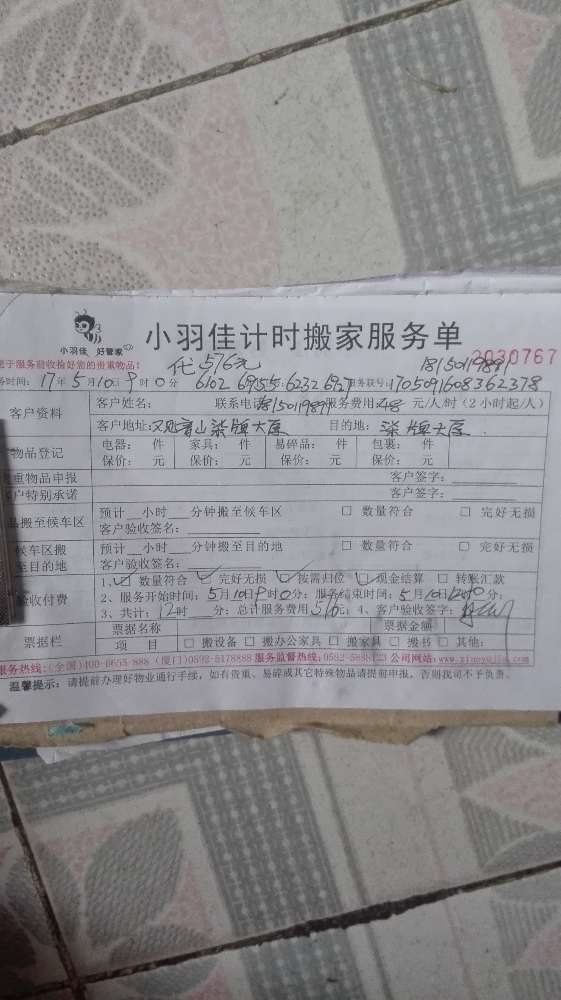 小羽佳 好管家
小羽佳计时搬家服务单
于服务前收捡好您的贵重物品!
代 576元
18150119891
2030767
务时间: 17年 5月10日 9时 0分 6102 6955 6232 6927 服务联号: 1705091608362378
客户资料
客户姓名: 联系电话: 18150119891 服务费用: 48 元/人/时 (2 小时起/人)
客户地址: 观音山柒牌大厦 目的地: 柒牌大厦
物品登记
电器: 件 家具: 件 易碎品: 件 包裹: 件
保价: 元 保价: 元 保价: 元 保价: 元
重物品申报 客户签字:
户特别承诺 客户签字:
品搬至候车区
预计__小时__分钟搬至候车区 □ 数量符合 □ 完好无损
客户验收签名:
候车区搬
至目的地
预计__小时__分钟搬至目的地 □ 数量符合 □ 完好无损
客户验收签名:
验收付费
1、☑ 数量符合 ☑ 完好无损 ☑ 按需归位 ☑ 现金结算 □ 转账汇款
2、服务开始时间: 5月10日9时0分; 服务结束时间: 5月10日12时0分;
3、共计: 12时 分; 总计服务费用 576元; 4、客户验收签字:
票据栏
票据名称 票据金额
项 目 □ 搬设备 □ 搬办公家具 □ 搬家具 □ 搬砖 □ 其他:
服务热线: (全国)400-6655-888 (厦门)0592-5178888 服务监督热线: 0592-5888123 公司网站: www.xiaoyujia.com
温馨提示: 请提前办理好物业通行手续, 如有贵重、易碎或其它特殊物品请提前申报, 否则我司不予负责。